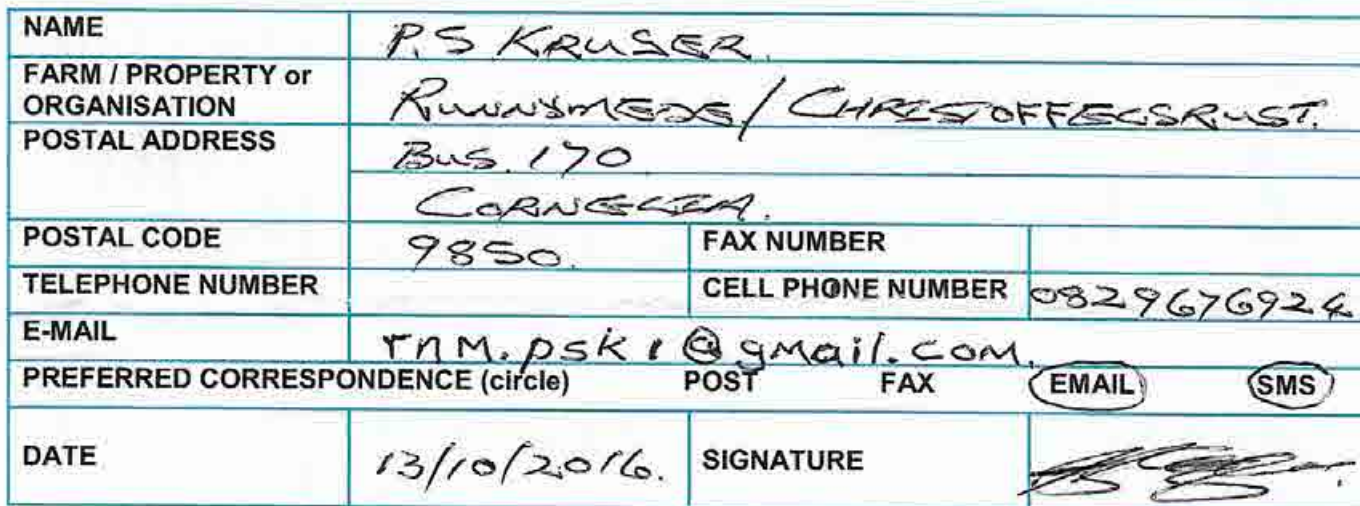 NAME P.S KRUGER.
FARM / PROPERTY or ORGANISATION RUNNYMEDE / CHRISTOFFELSRUST.
POSTAL ADDRESS BUS 170
CORNELIA.
POSTAL CODE 9850. FAX NUMBER
TELEPHONE NUMBER CELL PHONE NUMBER 0829676924
E-MAIL rnM.psk1@gmail.com.
PREFERRED CORRESPONDENCE (circle) POST FAX EMAIL SMS
DATE 13/10/2016. SIGNATURE